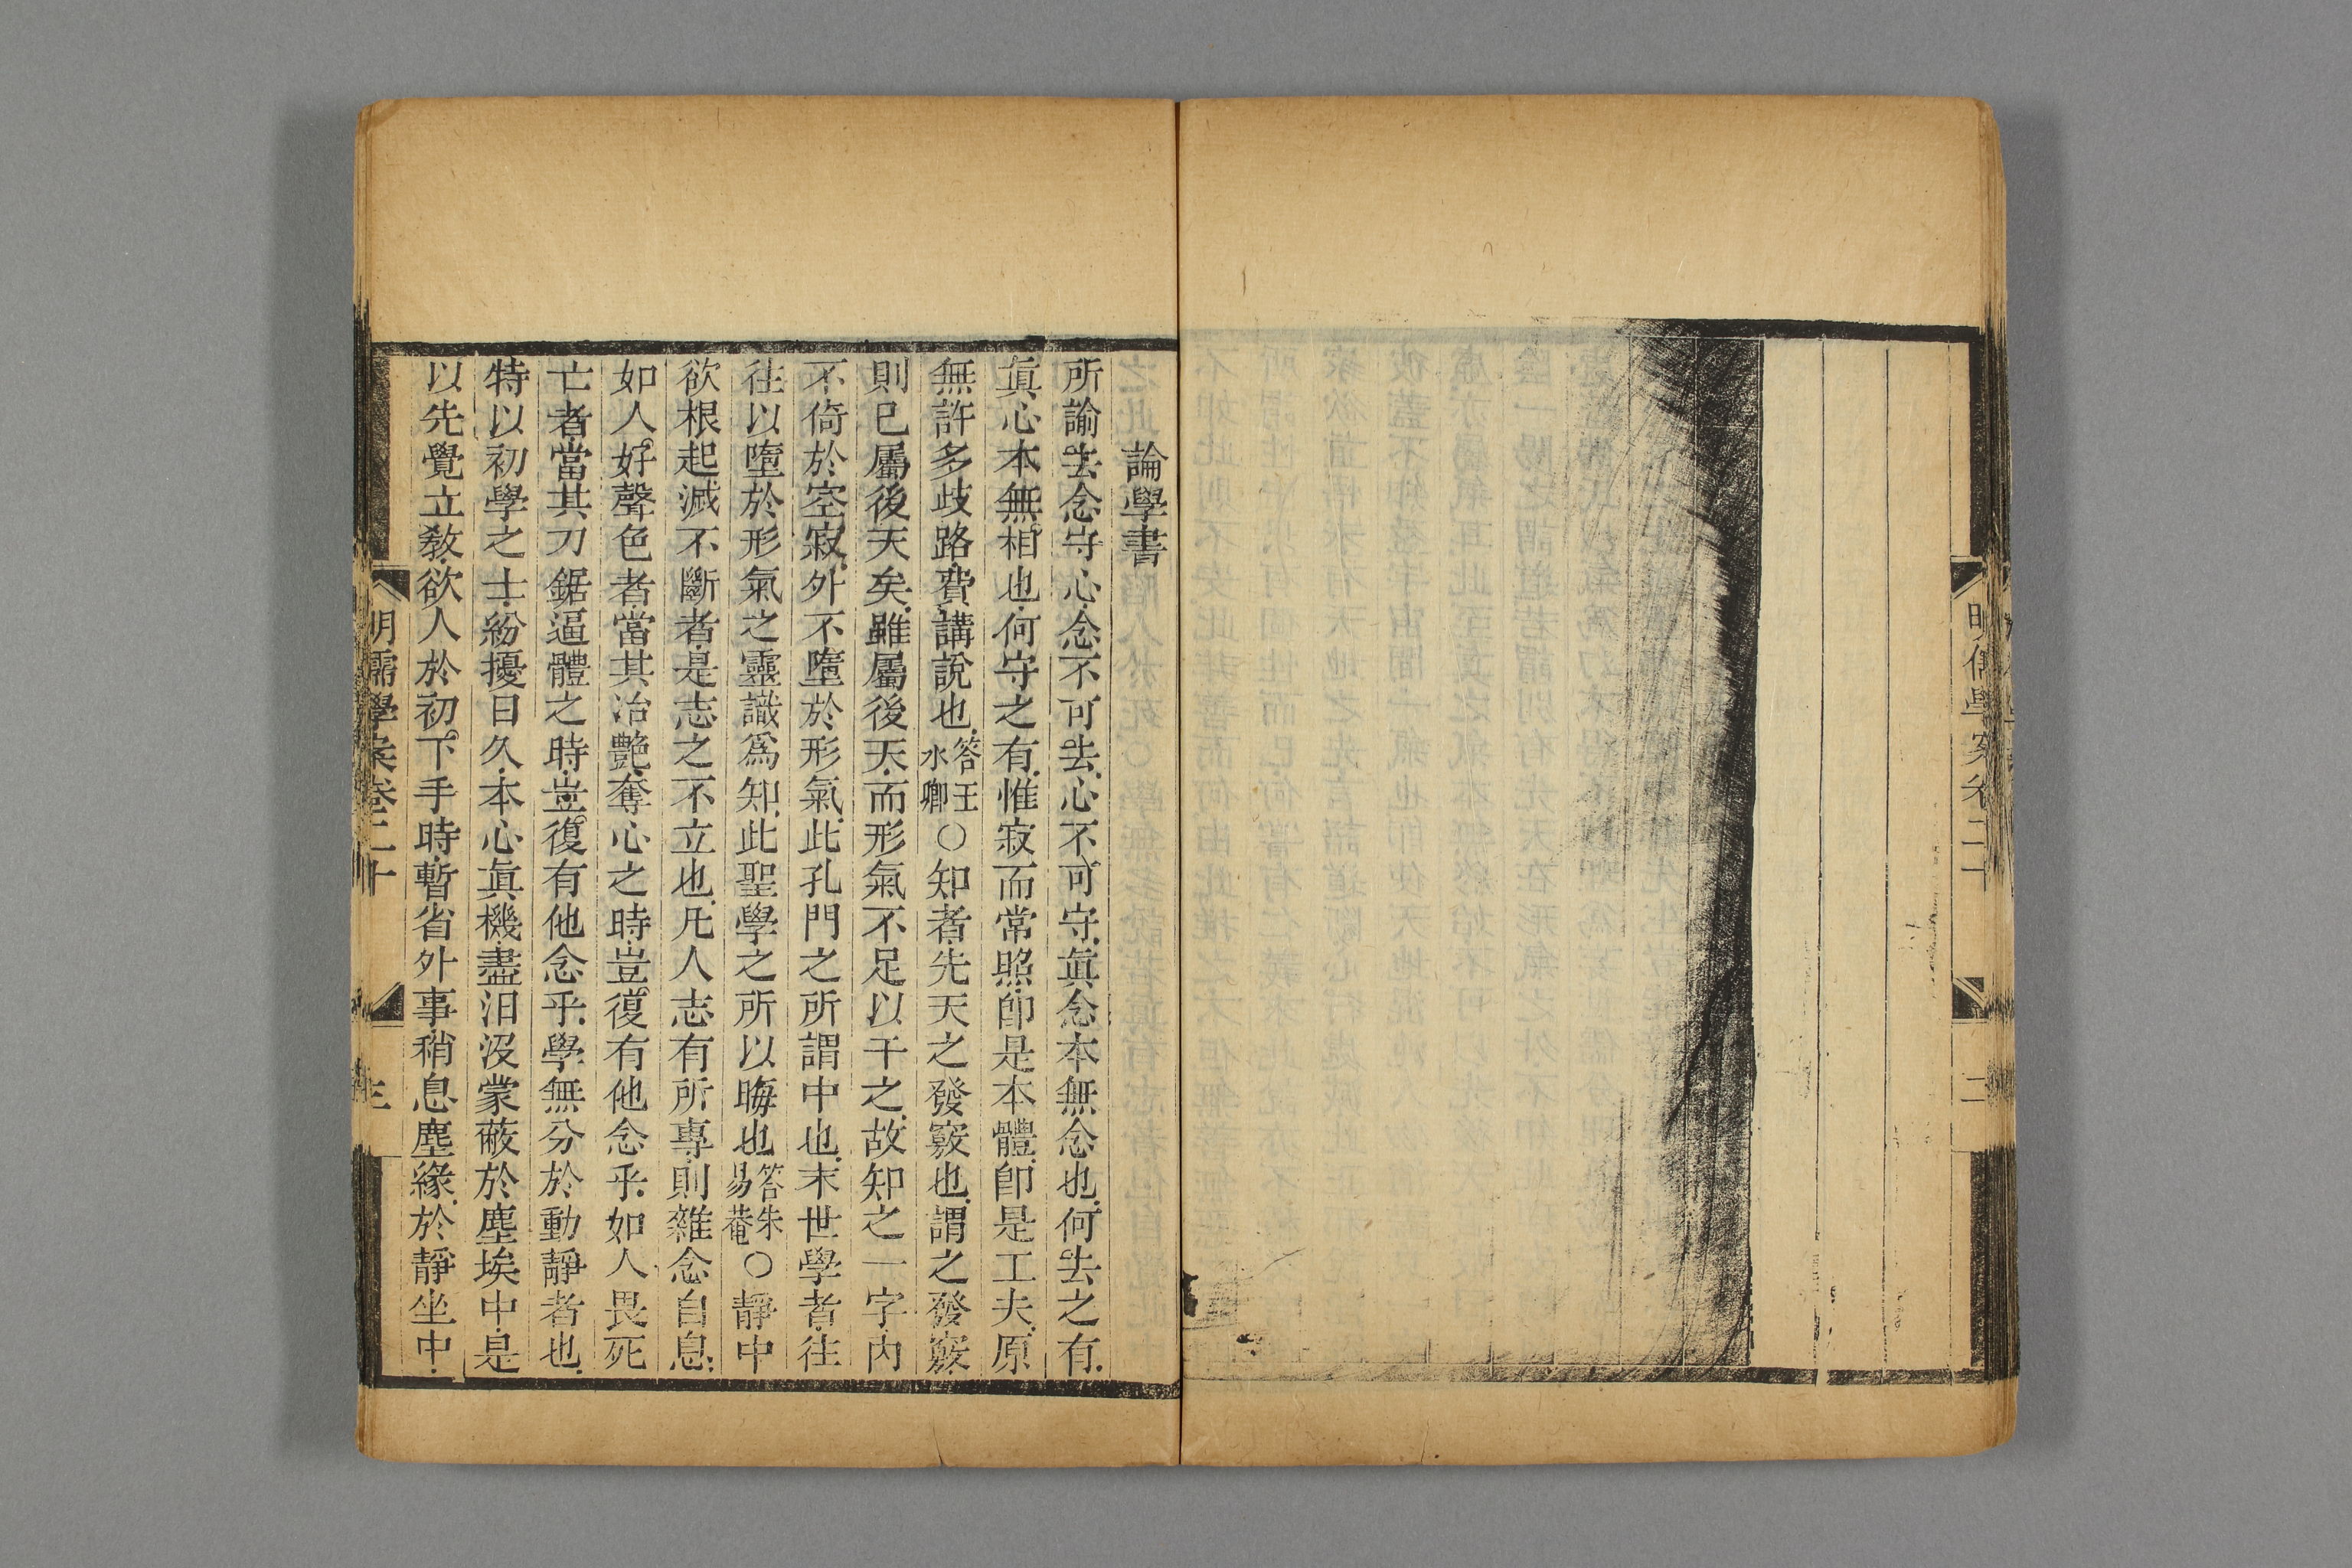 明儒學案卷二十
二
論學書
所諭去念守心念不可去心不可守眞念本無念也何去之有
眞心本無相也何守之有惟寂而常照卽是本體卽是工夫原
無許多歧路費講說也答王水卿○知者先天之發竅也謂之發竅
則已屬後天矣雖屬後天而形氣不足以干之故知之一字內
不倚於空寂外不墮於形氣此孔門之所謂中也末世學者往
往以墮於形氣之靈識爲知此聖學之所以晦也答朱易菴○靜中
欲根起滅不斷者是志之不立也凡人志有所專則雜念自息
如人好聲色者當其冶艷奪心之時豈復有他念乎如人畏死
亡者當其刀鋸逼體之時豈復有他念乎學無分於動靜者也
特以初學之士紛擾日久本心眞機盡汩沒蒙蔽於塵埃中是
以先覺立敎欲人於初下手時暫省外事稍息塵緣於靜坐中
明儒學案卷二十
三